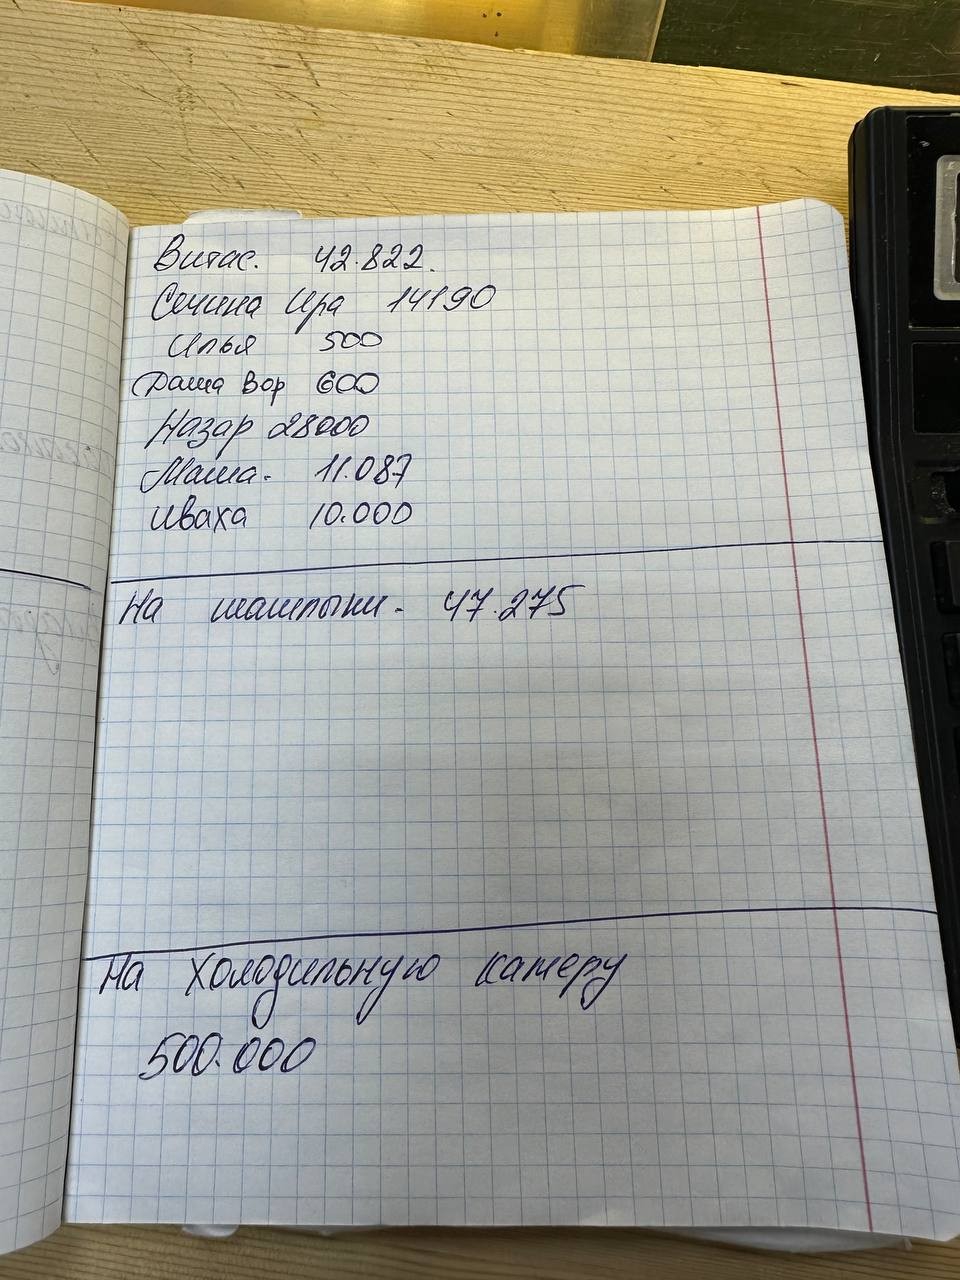 Витас. 42.822.
Сечина Ира 14190
Илья 500
Даша Вор 600
Назар 28000
Маша. 11.087
Иваха 10.000
На шашлыки. 47.275
На холодильную камеру
500.000